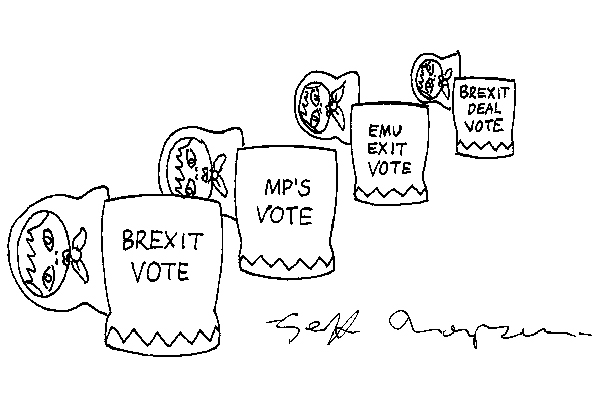 BREXIT
VOTE
MP'S
VOTE
EMU
EXIT
VOTE
BREXIT
DEAL
VOTE
Geoff